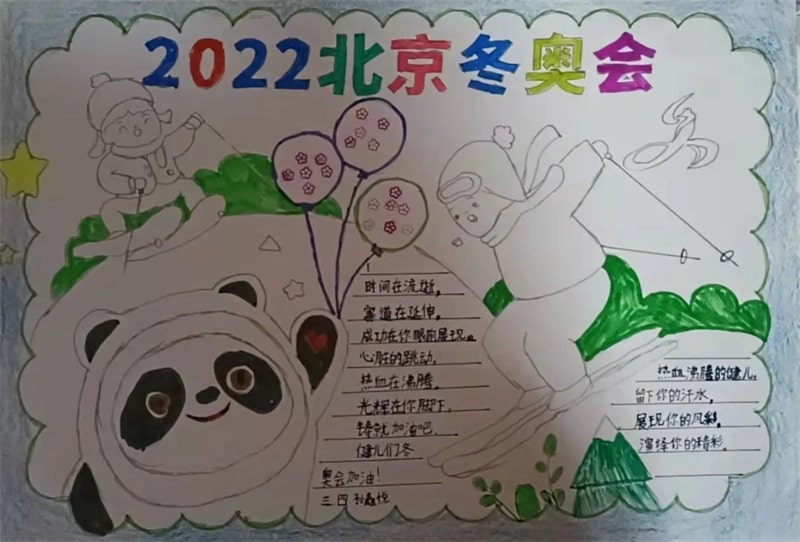 2022北京冬奥会
时间在流逝,
赛道在延伸,
成功在你眼前展现。
心脏的跳动,
热血在沸腾。
光辉在你脚下,
铸就加油吧.
健儿们冬
奥会加油!
三四孙鑫悦
热血沸腾的健儿,
留下你的汗水,
展现你的风彩,
演绎你的精彩。